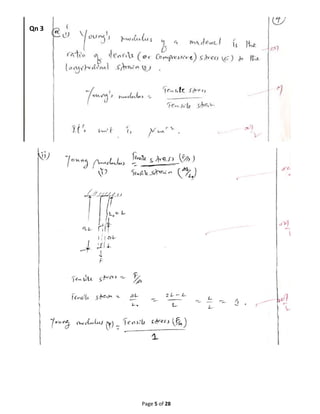 Qn 3
(i) Young's modulus of a material is the
ratio of tensile (or compressive) stress to the
longitudinal strain.
Young's modulus = Tensile stress
Tensile strain
It's unit is Nm⁻².
(ii) Young modulus = Tensile stress (F/A)
Tensile strain
L₀ = L
2L
ΔL
F
Tensile stress = F/A
Tensile strain = ΔL/L₀ = 2L - L/L = L/L = 1.
Young modulus (Y) = Tensile stress (F/A)
1
Page 5 of 28